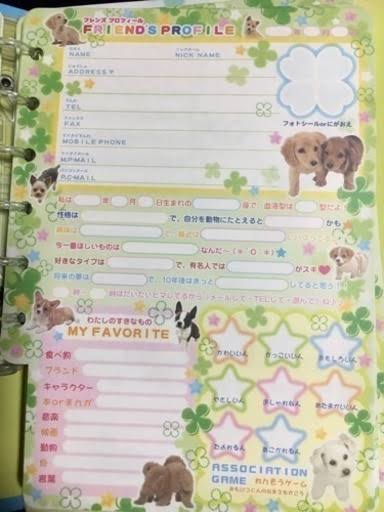 フレンズ プロフィール
FRIEND'S PROFILE
年 月 日
NAME
NICK NAME
ADDRESS〒
TEL
FAX
MOBILE PHONE
M.P-MAIL
P.C-MAIL
フォトシールorにがおえ
私は 年 月 日生まれの 座で、血液型は 型だよ
性格は で、自分を動物にたとえると かも
今一番ほしいものは なんだ〜
好きなタイプは で、有名人では がスキ
将来の夢は で、10年後はきっと してると思う!
わたしのすきなもの
MY FAVORITE
食べ物
ブランド
キャラクター
本orまんが
音楽
映画
動物
色
言葉
かわいいん
かっこいいん
おもしろいん
やさしいん
おしゃれなん
あたまがいいん
たよれるん
あこがれるん
ASSOCIATION
GAME
れんそうゲーム